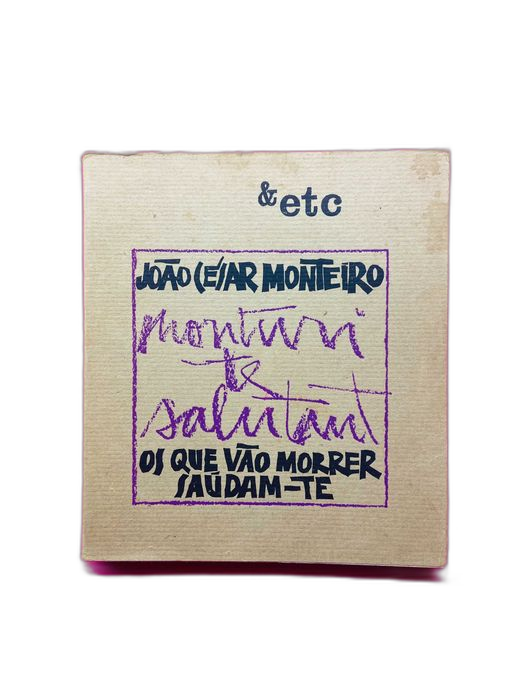 & etc
JOÃO CÉSAR MONTEIRO
monturi
te
salutant
OS QUE VÃO MORRER
SAÚDAM-TE